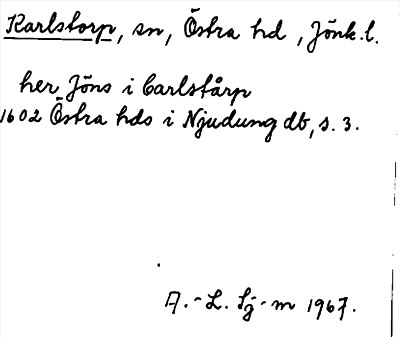 Karlstorp, sn, Östra hd, Jönk. l.
her Jöns i Carlstårp
1602 Östra hds i Njudung db, s. 3.
A.-L. Sj-m 1967.